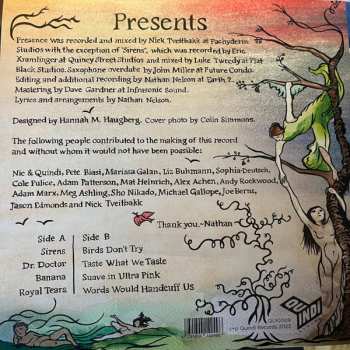 Presents
Presence was recorded and mixed by Nick Tveitbakk at Pachyderm
Studios with the exception of "Sirens", which was recorded by Eric
Kramlinger at Quincy Street Studios and mixed by Luke Tweedy at Flat
Black Studios. Saxophone overdubs by John Miller at Future Condo.
Editing and additional recording by Nathan Nelson at Earth 2.
Mastering by Dave Gardner at Infrasonic Sound.
Lyrics and arrangements by Nathan Nelson.
Designed by Hannah M. Haugberg. Cover photo by Colin Simmons.
The following people contributed to the making of this record
and without whom it would not have been possible:
Nic & Quindi, Pete Biasi, Marissa Galan, Liz Buhmann, Sophia Deutsch,
Cole Pulice, Adam Patterson, Mat Heinrich, Alex Achen, Andy Rockwood,
Adam Marx, Meg Ashling, Sho Nikado, Michael Gallope, Joe Berns,
Jason Edmonds and Nick Tveitbakk
Thank you, ~Nathan
Side A Side B
Sirens Birds Don't Try
Dr. Doctor Taste What We Taste
Banana Suave in Ultra Pink
Royal Tears Words Would Handcuff Us
QUINDI
Quindi Records 2022